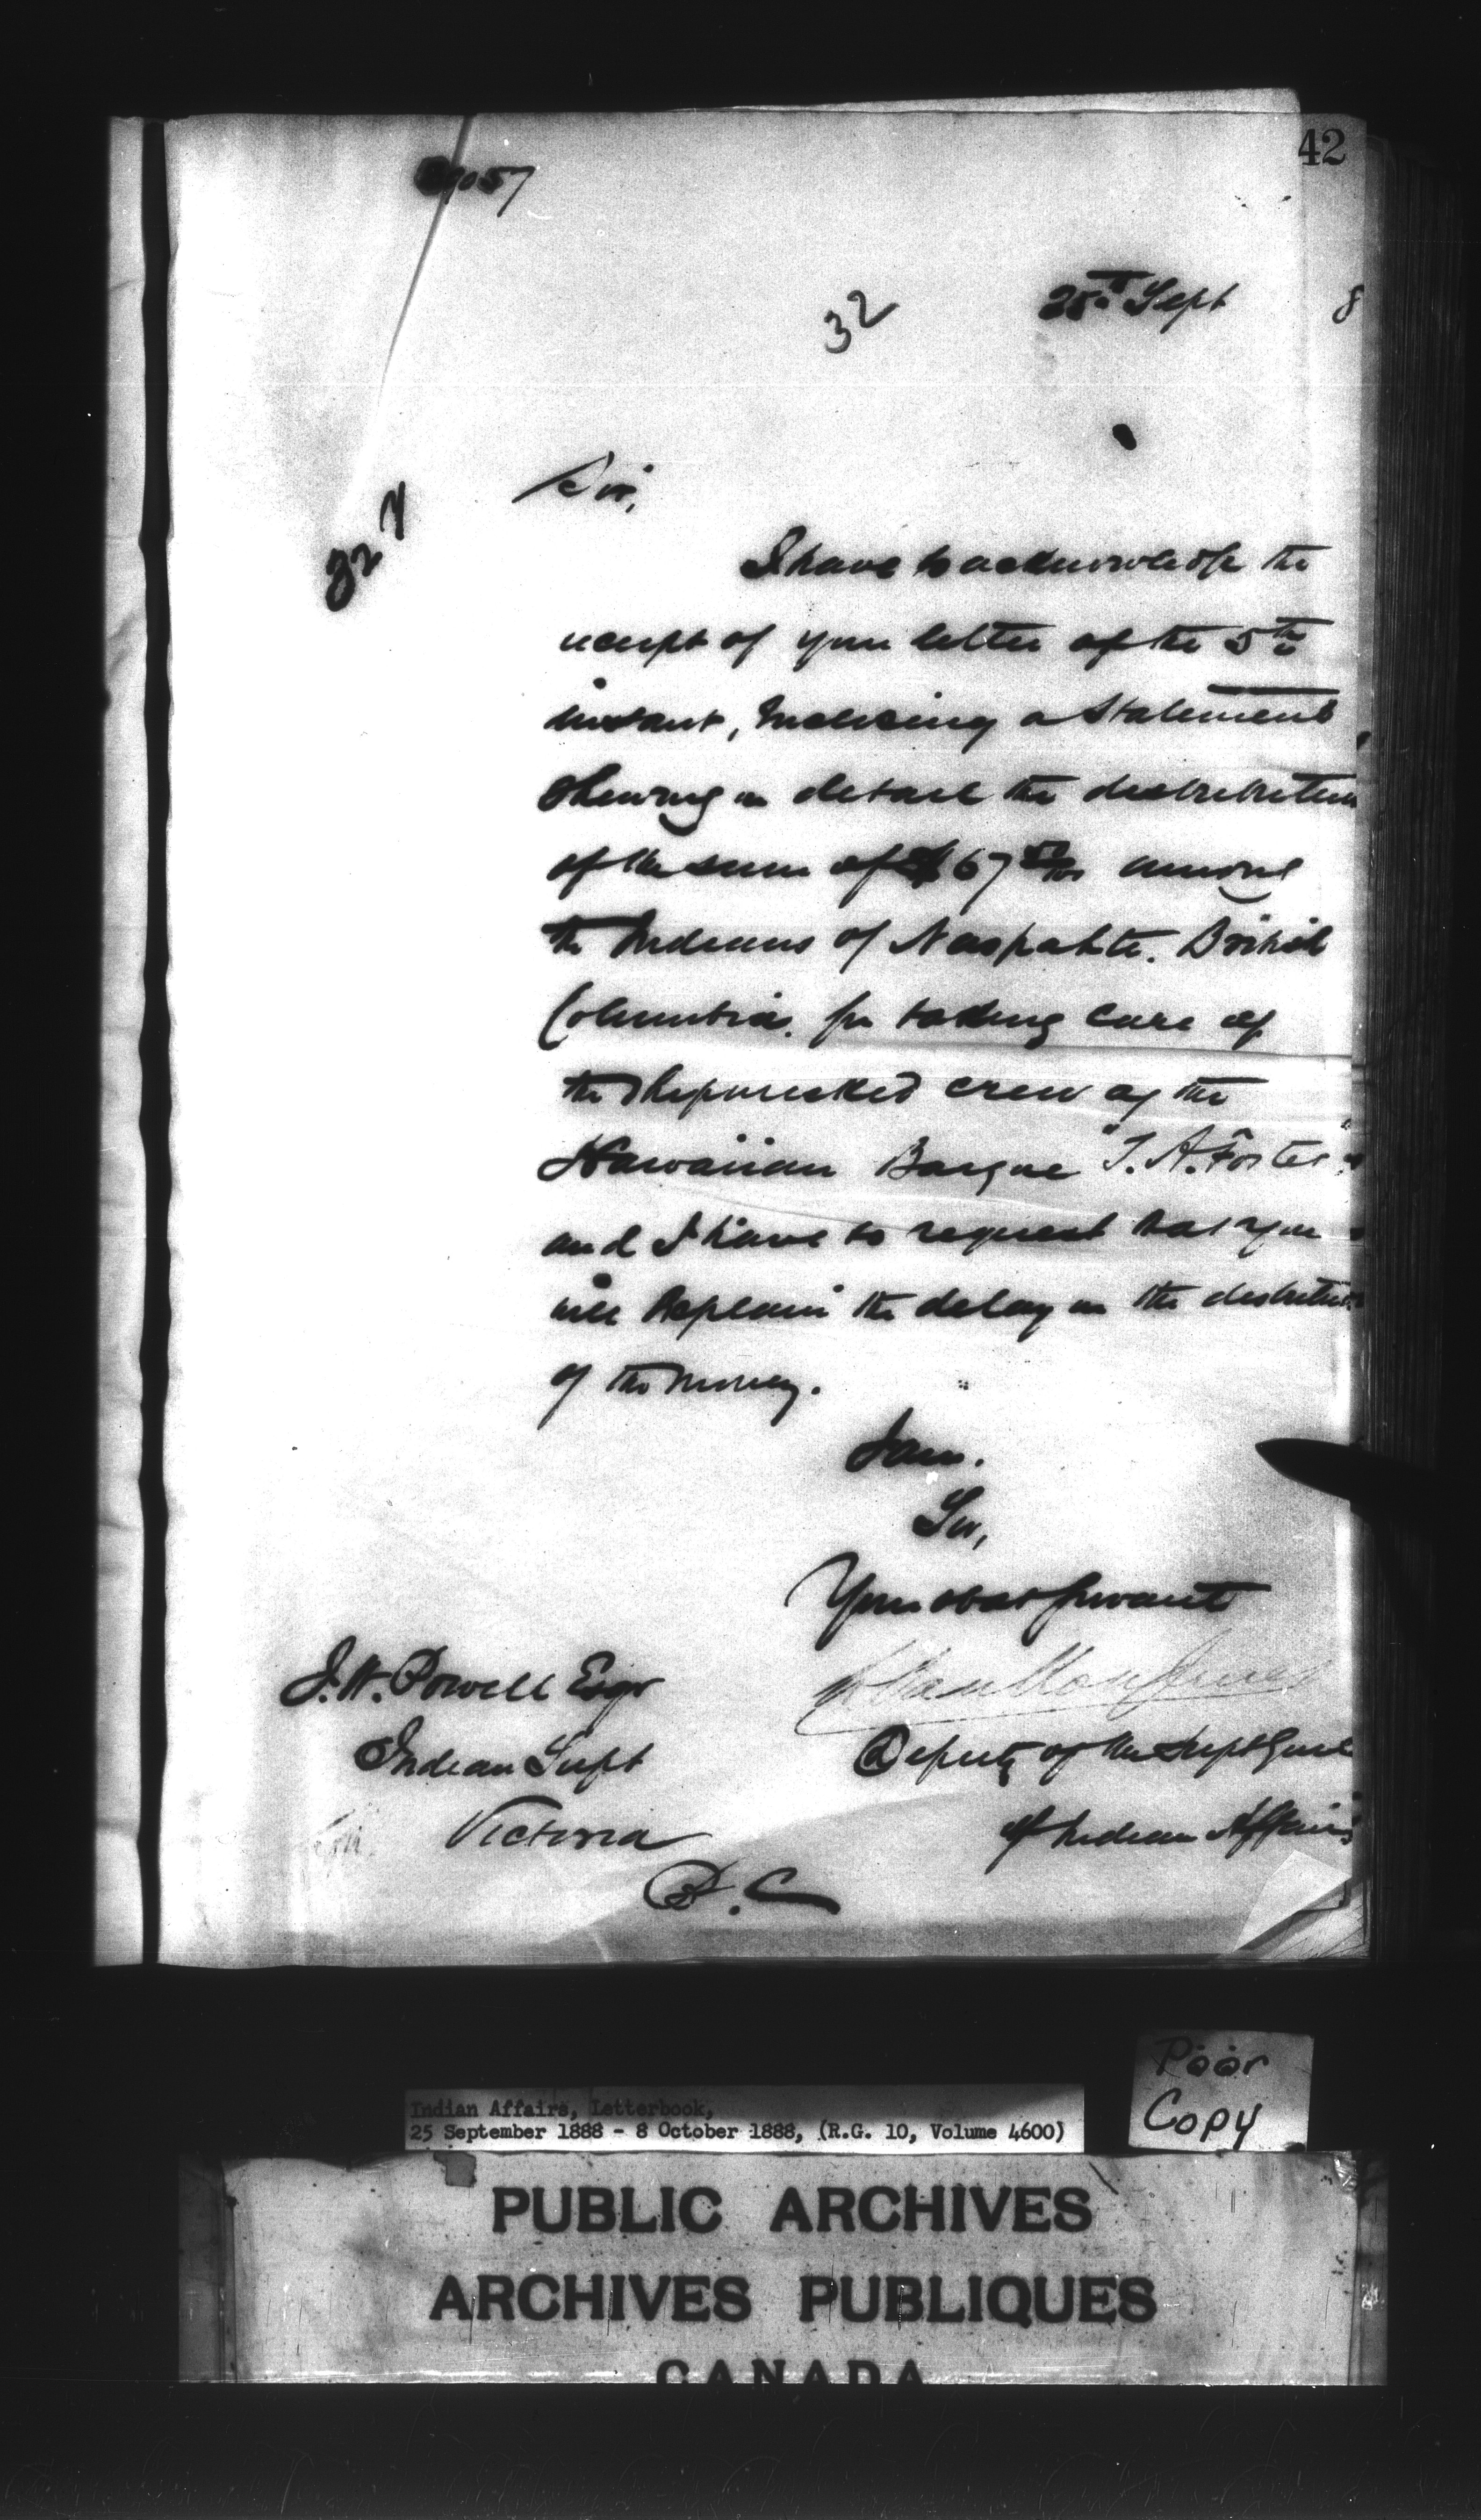 42
32
25th Sept 8
Sir,
327
I have to acknowledge the
receipt of your letter of the 5th
instant, inclosing a Statement
shewing in detail the distribution
of the sum of $67 among
the Indians of Naspahte. British
Columbia. for taking care of
the Shipwrecked crew of the
Hawaiian Barque "T. A. Foster"
and I have to request that you
will explain the delay in the distribution
of the money.
I am.
Sir,
Your obdt servant
L Vankoughnet
J. W. Powell Esqr
Deputy of the Supt Genl
Indian Supt
of Indian Affairs
Victoria
B.C
Poor
Copy
Indian Affairs, Letterbook,
25 September 1888 - 8 October 1888, (R.G. 10, Volume 4600)
PUBLIC ARCHIVES
ARCHIVES PUBLIQUES
CANADA